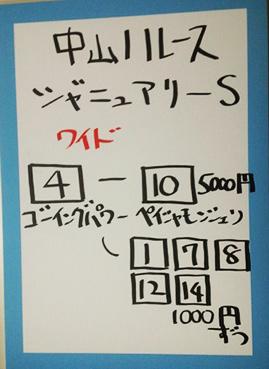 中山11レース
ジャニュアリーS
ワイド
4 - 10 5000円
ゴーイングパワー ペイシャモンシェリ
1 7 8
12 14
1000円
ずつ